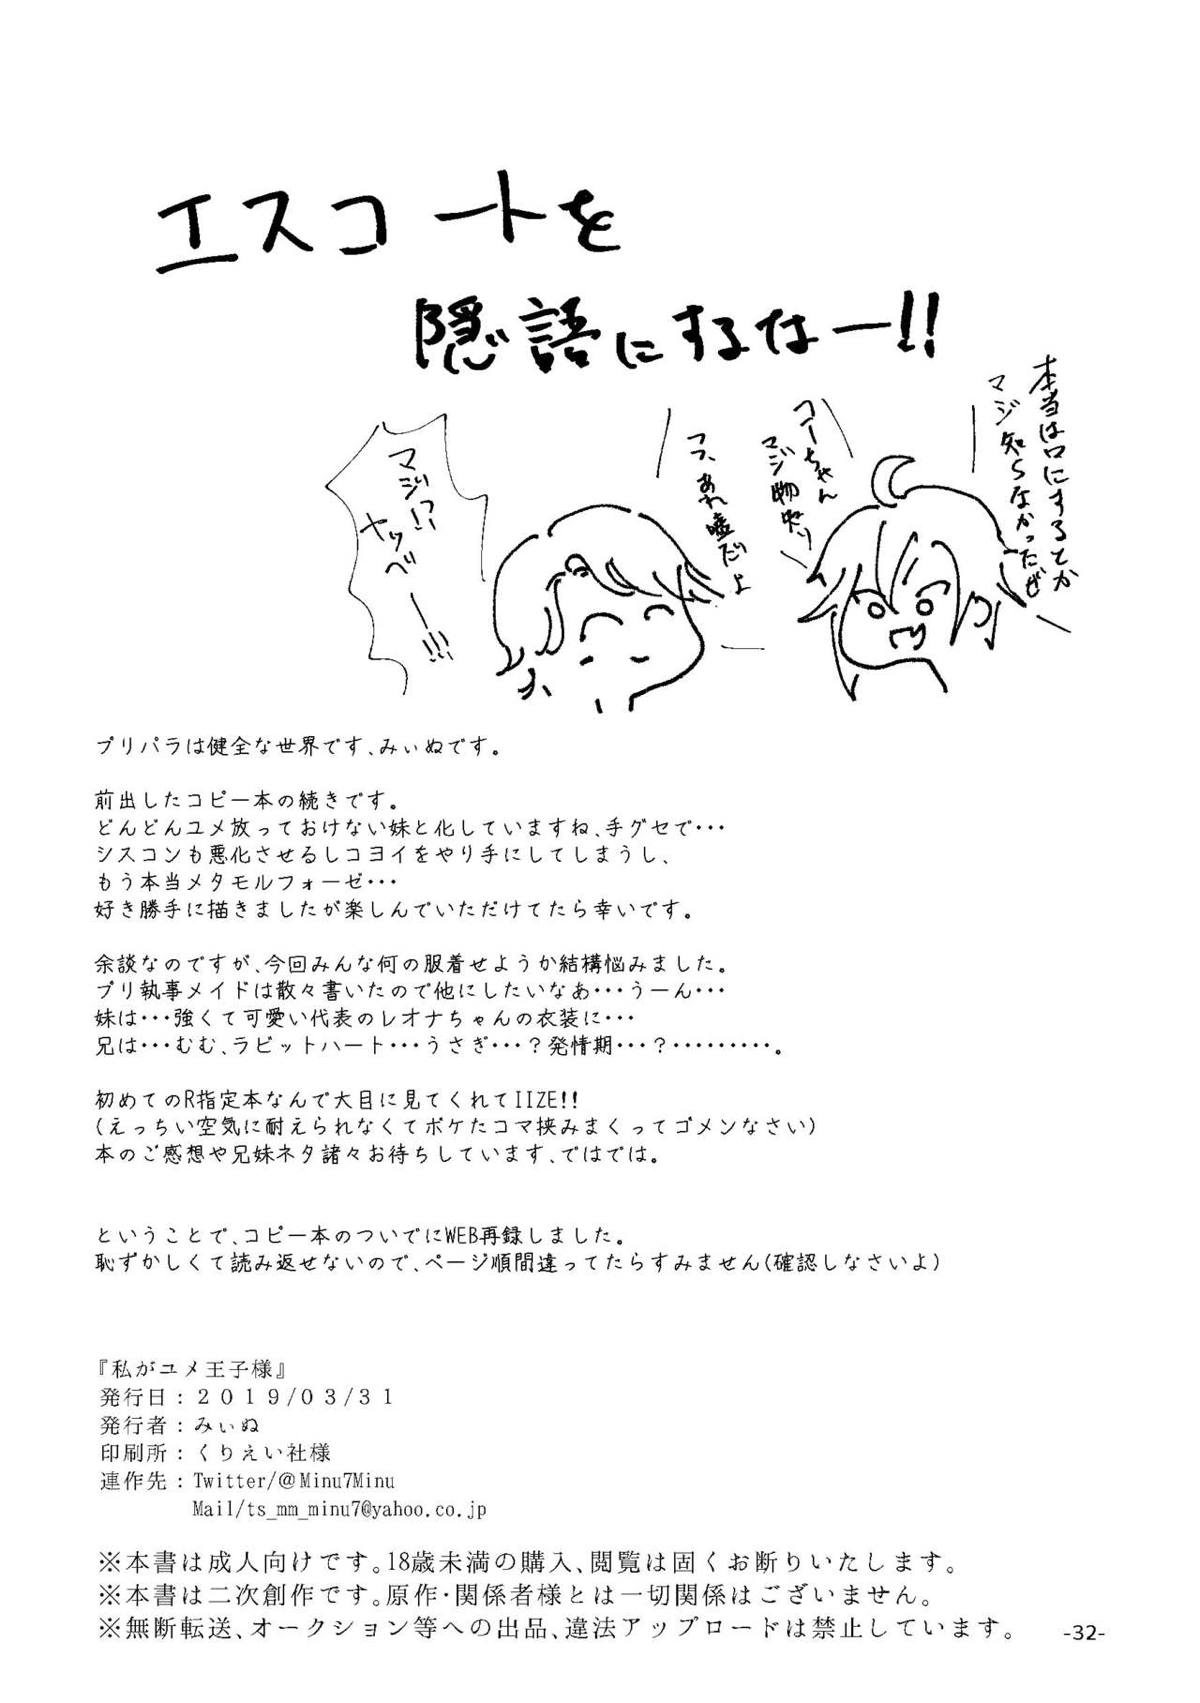 エスコートを
隠語にするなー!!
本当は口にするとか
マジ知らなかったぜ
コーちゃん
マジ物知り
フフ、あれ嘘だよ
マジっ!?
ヤッベー!!!
プリパラは健全な世界です、みぃぬです。
前出したコピー本の続きです。
どんどんユメ放っておけない妹と化していますね、手グセで･･･
シスコンも悪化させるしコヨイをやり手にしてしまうし、
もう本当メタモルフォーゼ･･･
好き勝手に描きましたが楽しんでいただけてたら幸いです。
余談なのですが、今回みんな何の服着せようか結構悩みました。
プリ執事メイドは散々書いたので他にしたいなあ･･･うーん･･･
妹は･･･強くて可愛い代表のレオナちゃんの衣装に･･･
兄は･･･むむ、ラビットハート･･･うさぎ･･･？発情期･･･？･････････。
初めてのR指定本なんで大目に見てくれてIIZE!!
(えっちい空気に耐えられなくてボケたコマ挟みまくってゴメンなさい)
本のご感想や兄妹ネタ諸々お待ちしています、ではでは。
ということで、コピー本のついでにWEB再録しました。
恥ずかしくて読み返せないので、ページ順間違ってたらすみません(確認しなさいよ)
『私がユメ王子様』
発行日：２０１９/０３/３１
発行者：みぃぬ
印刷所：くりえい社様
連作先：Twitter/@Minu7Minu
Mail/ts_mm_minu7@yahoo.co.jp
※本書は成人向けです。18歳未満の購入、閲覧は固くお断りいたします。
※本書は二次創作です。原作･関係者様とは一切関係はございません。
※無断転送、オークション等への出品、違法アップロードは禁止しています。
-32-